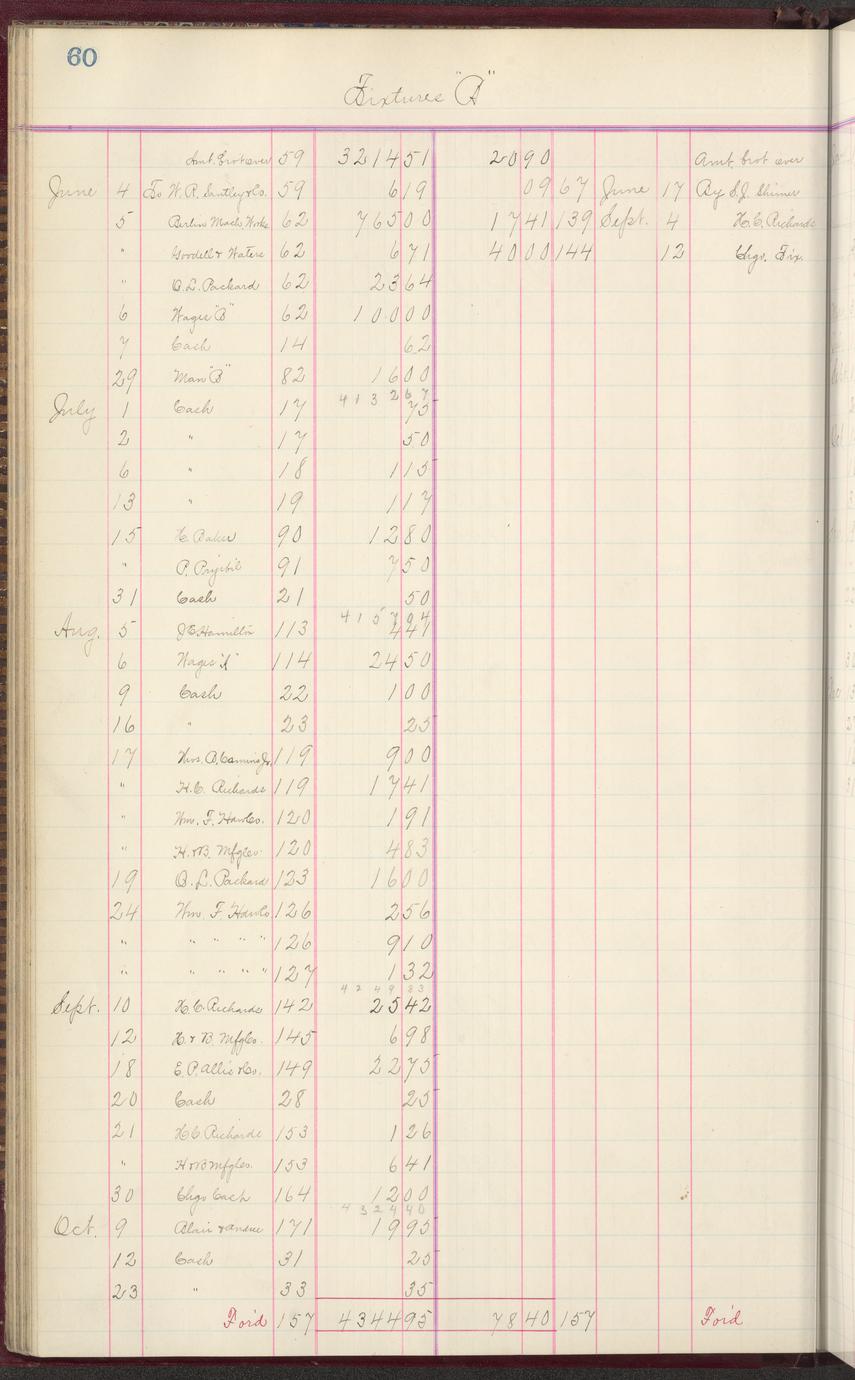 60
Fixtures "A"
Amt. brot over 59 3214 51 20 90 Amt. brot over
June 4 To W. R. Santley & Co. 59 6 19 09 67 June 17 By S. J. Shimer
5 Berlin Mach. Works 62 765 00 17 41 139 Sept. 4 H. C. Richards
" Goodell & Waters 62 6 71 40 00 144 12 Chgs. Fix.
" O. L. Packard 62 23 64
6 Wages "B" 62 100 00
7 Cash 14 62
29 Man "B" 82 16 00
4132 67
July 1 Cash 17 75
2 " 17 50
6 " 18 1 15
13 " 19 1 17
15 H. Baker 90 12 80
" P. Pryibil 91 7 50
31 Cash 21 50
4157 04
Aug. 5 J E Hamilton 113 4 47
6 Wages "A" 114 24 50
9 Cash 22 1 00
16 " 23 25
17 119 9 00
" H. C. Richards 119 17 41
" Wm. F. 120 1 91
" H. & B. Mfg Co. 120 4 83
19 O. L. Packard 123 16 00
24 Wm. F. 126 2 56
" " " " " 126 9 10
" " " " " 127 1 32
4249 83
Sept. 10 H. C. Richards 142 25 42
12 H. & B. Mfg Co. 145 6 98
18 E. P. Allis & Co. 149 22 75
20 Cash 28 25
21 H C Richards 153 1 26
" H & B Mfg Co. 153 6 41
30 Chgs Cash 164 12 00
4324 40
Oct. 9 Blair & Andree 171 19 95
12 Cash 31 25
23 " 33 35
For'd 157 4344 95 78 40 157 For'd